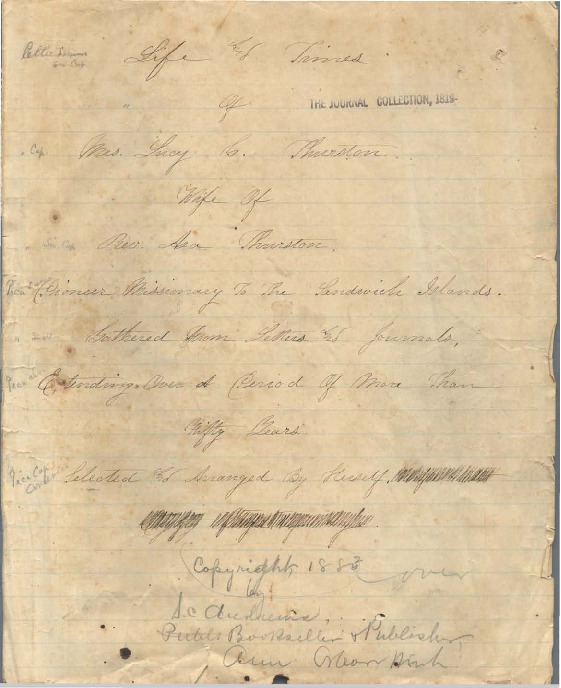 Life & Times
Of
THE JOURNAL COLLECTION, 1819-
Cap
Mrs. Lucy G. Thurston.
Wife Of
Rev. Asa Thurston.
Pioneer Missionary To The Sandwich Islands.
Gathered From Letters & Journals,
Extending Over A Period Of More Than
Fifty Years
Selected & Arranged By Herself.
Copyright, 1882
over
by
S. C. Andrews,
Bookseller & Publisher
Ann Arbor Mich